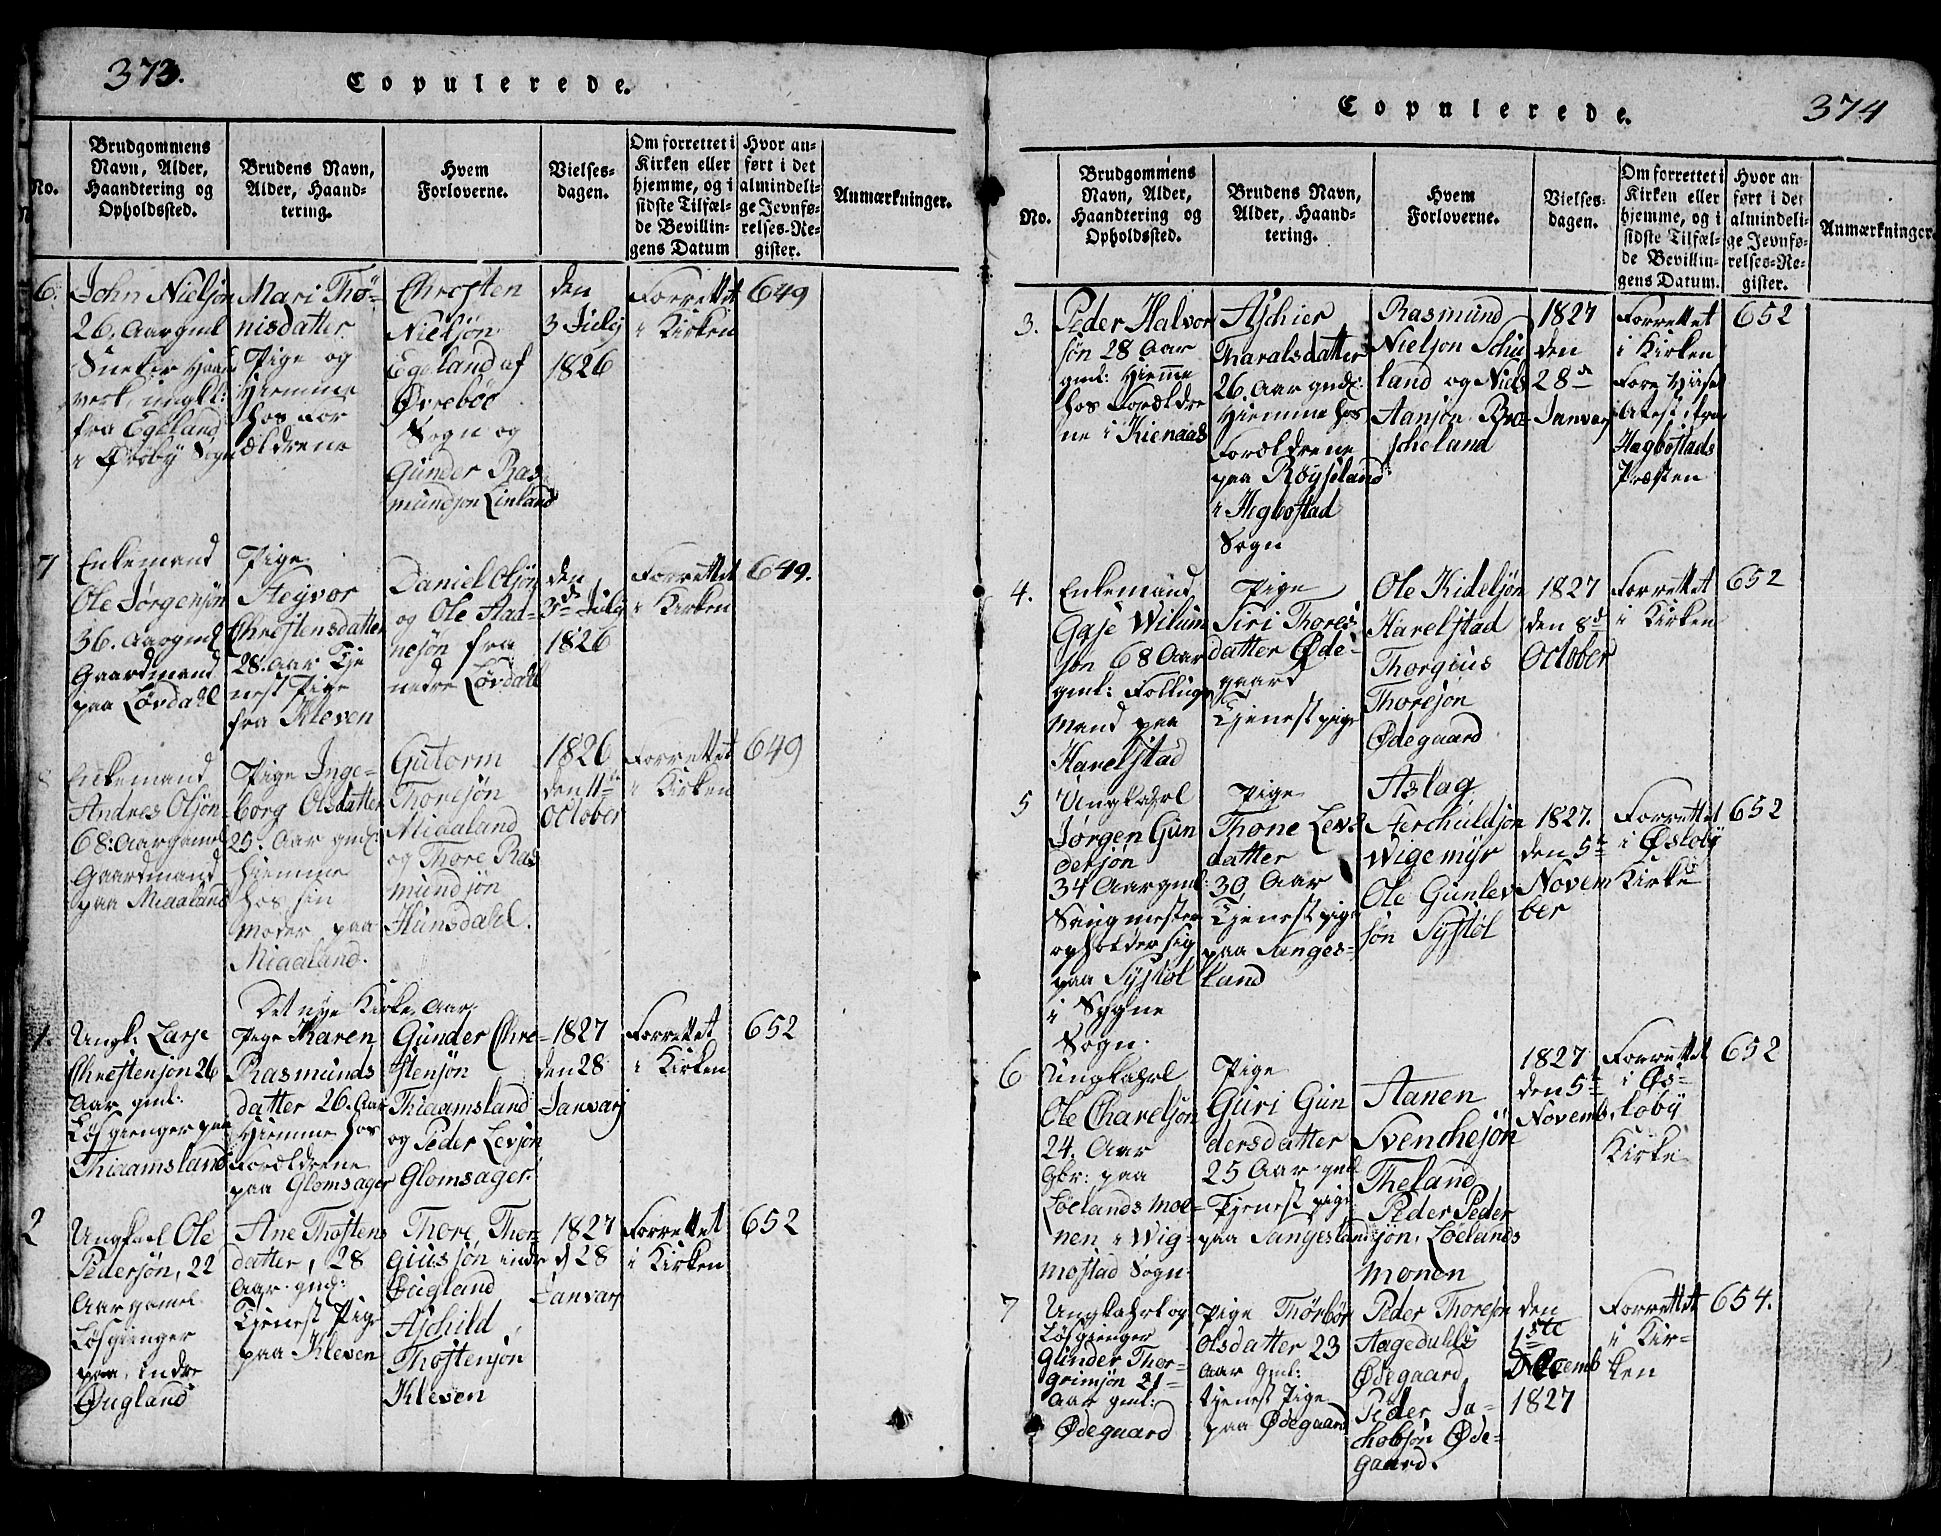 373.
Copulerede.
No.
Brudgommens
Navn, Alder,
Haandtering og
Opholdssted.
Brudens Navn,
Alder, Haand-
tering.
Hvem
Forloverne.
Vielses-
dagen.
Om forrettet i
Kirken eller
hjemme, og i
sidste Tilfæl-
de Bevillin-
gens Datum
Hvor an-
ført i det
almindeli-
ge Jevnfø-
relses-Re-
gister.
Anmærkninger.
6.
John Nielsøn
26. Aar gml
fra Egeland
i Øvebÿ Sogn
Mari Thö-
nisdatter
Pige og
Hiemme
hos For
ældrene
Chresten
Nielsøn
Egeland af
Øvreböe
Sogn og
Gunder Ras
mundsøn Linland
den
3 Julÿ
1826
Forrettet
i Kirken
649
7
Enkemand
Ole Jørgensøn
36. Aar gml
Gaardmand
paa Lövdahl
Pige
Steÿvor
Chrestensdatter
28. Aar Tje
nest Pige
fra Kleven
Daniel Olsön
og Ole Aad-
nesøn fra
nedre Lövdahl
den
3de Julÿ
1826
Forrettet
i Kirken
649.
8
Enkemand
Andres Olsön
68. Aar gamel
Gaardmand
paa Miaaland
Pige Inge-
borg Olsdatter
25. Aar gml:
Hiemme
hos sin
Moder paa
Miaaland.
Gutorm
Thoresøn
Miaaland
og Thore Ras
mundsøn
Hunsdahl.
1826
den 11te
October
Forrettet
i Kirken
649
Det nye Kirke-Aar
1.
Ungk: Larse
Chrestensøn 26
Aar gml:
Løsgienger paa
Thiaamsland
Pige Karen
Rasmunds
datter 26. Aar
Hiemme hos
Forældrene
paa Glomsager
Gunder Chre-
stensøn
Thiaamsland
og Peder Levsøn
Glomsager.
1827
den 28
Januarÿ
Forrettet
i Kirken
652
2
Ungkael Ole
Pedersøn, 22
Aar gamel
Løsgienger
paa indre
Øugland
Ane Thostens
datter, 28
Aar gml:
Tjenest Pige
paa Kleven
Thore Thor-
giussøn indre
Øugland
Aschild
Thostensøn
Kleven
1827
d 28
Januarÿ
Forrettet
i Kirken
652
374
Copulerede.
No.
Brudgommens
Navn, Alder,
Haandtering og
Opholdssted.
Brudens Navn,
Alder, Haand-
tering.
Hvem
Forloverne.
Vielses-
dagen.
Om forrettet i
Kirken eller
hjemme, og i
sidste Tilfæl-
de Bevillin-
gens Datum.
Hvor an
ført i det
almindeli-
ge Jevnfø-
relses-Re-
gister.
Anmærkninger.
3.
Peder Halvor
søn 28 Aar
gml: Hiemme
hos Forældre
ne i Kienaas
Aschier
Tharalsdatter
26. Aar gml:
Hiemme hos
Forældrene
paa Röyseland
i Hegbostad
Sogn
Rasmund
Nielsøn
land og Niels
Aansøn
scheland
1827
den
28de
Januarÿ
Forrettet
i Kirken
Atest ifra
Hægbostads
Præsten
652
4.
Enkemand
68 Aar
gml:
Mand paa
Harelstad
Pige
Siri Thores
datter Øde-
gaard
Tjenest pige
Ole Kidelsøn
Harelstad
Thorgius
Thoresøn
Ødegaard
1827
den 8de
October
Forrettet
i Kirken
652
5
Ungkahrl
Jørgen Gun
dersøn
34 Aar gml:
Saugmester
opholder sig
paa Sÿstøl
i Søgne
Sogn.
Pige
Thone Levs
datter
30 Aar
Tjenest pige
paa Sanges-
land
Aslag
Aerchildsøn
Wigemÿr
Ole Gunlev
søn Sÿstøl
1827.
den 5te
Novem
ber
Forrettet
i Øsloby
Kirke
652
6
Ungkahrl
Ole Charelsøn
24. Aar
Gbr: paa
Löelands moe-
nen i Wig-
mostad Sogn
Pige
Guri Gun
dersdatter
25 Aar gml
Tjenest pige
paa Sangesland
Aanen
Svenchesøn
Theland
Peder Peder
søn. Löelands
monen
1827
den 5te
Novemb.
Forrettet
i Øs-
loby
Kirke
652
7
Ungkahrl og
Løsgienger
Gunder Thor-
grimsøn 21-
Aar gml:
Ødegaard
Pige Thörbör
Olsdatter 23
Aar gml:
tjenest Pige
paa Ødegaard
Peder Thoresøn
Ødegaard
Peder Ja-
chobsøn Øde-
gaard.
den
1ste
Decemb
1827
Forrettet
i Kir-
ken
654.